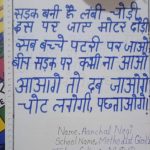 सड़क बनी है लंबी चौड़ी
इस पर जाए मोटर दौड़ी
सब बच्चे पटरी पर जाओ
बीच सड़क पर कभी ना आओ
आओगे तो दब जाओगे
चोट लगेगी, पछताओगे।
Name, Aanchal Negi
School Name, Methodist Girls